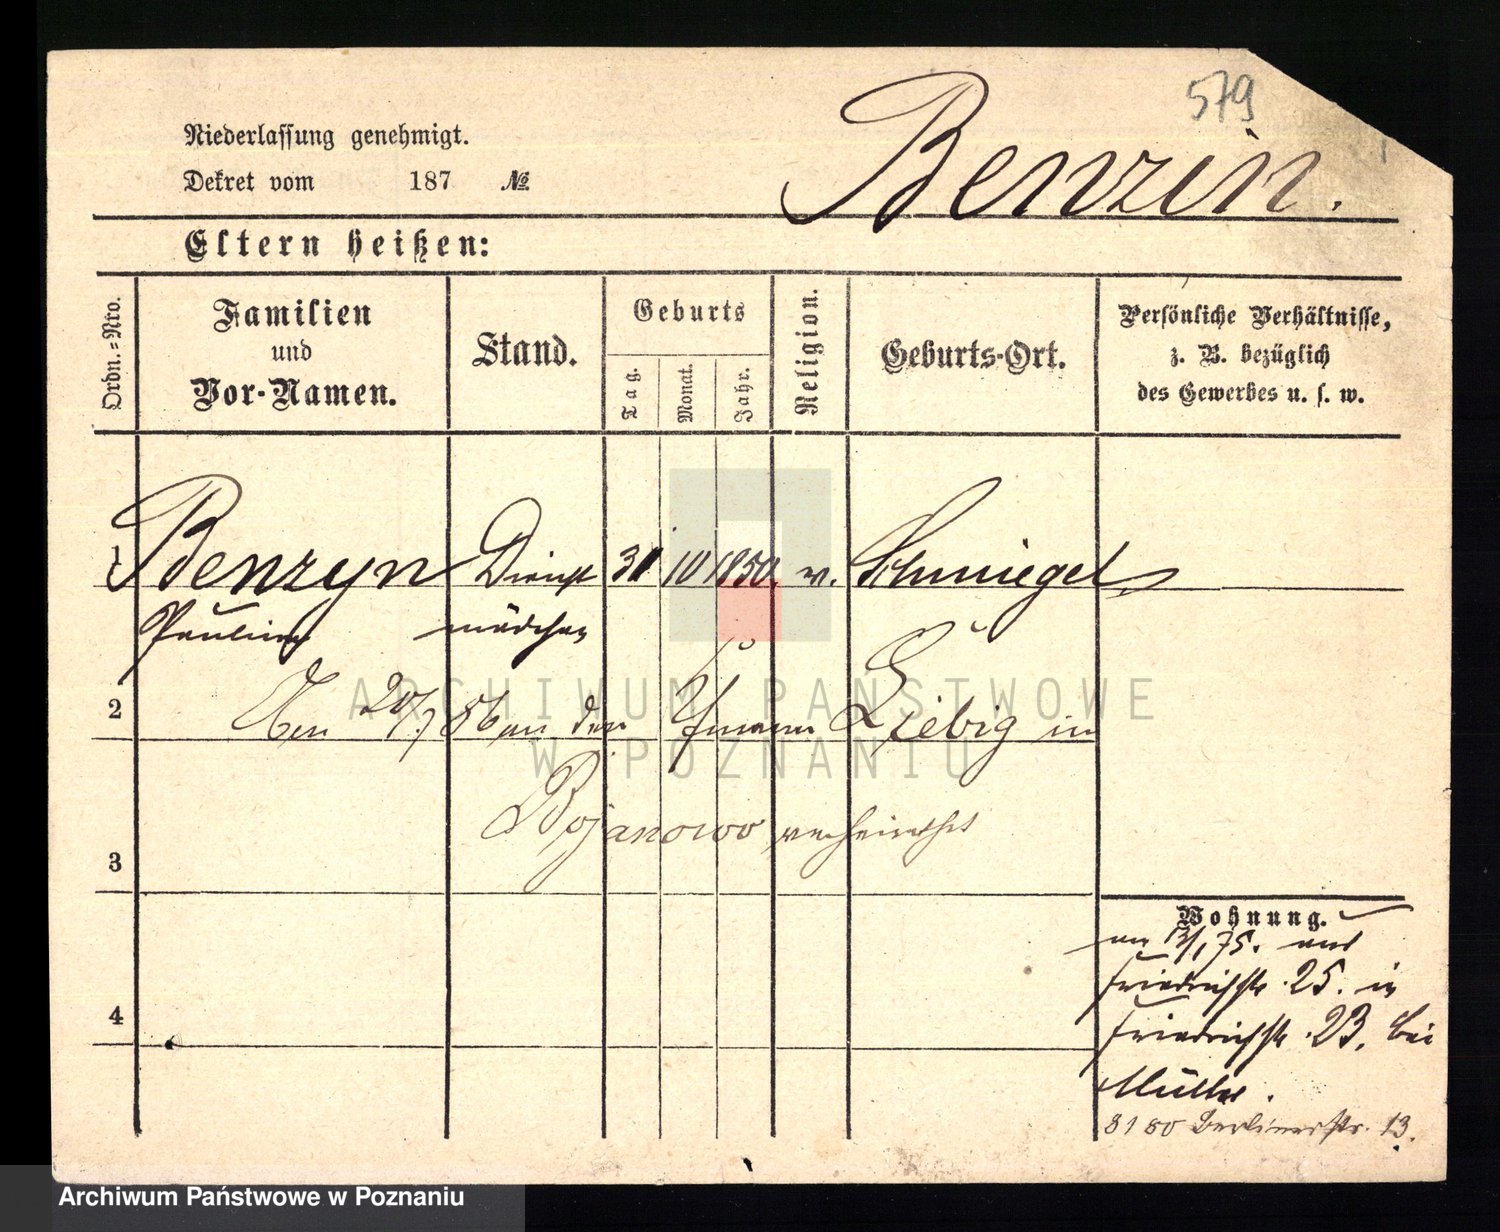 579
Niederlassung genehmigt.
Benzin.
Dekret vom 187 №
Eltern heißen:
Ordn.-Nro.
Familien und Vor-Namen.
Stand.
Geburts
Tag.
Monat.
Jahr.
Religion.
Geburts-Ort.
Persönliche Verhältnisse,
z. B. bezüglich
des Gewerbes u. s. w.
1 Benzyn Dienst 31 10 1850. Schmiegel
Pauline mädchen
2 Den 20/7 86 an den Liebig in
Bojanowo verheirathet
3
Wohnung.
am /1 75. aus
Friedrichstr. 25. in
Friedrichstr. 23. bei
4
Müller.
8180 Berlinerstr. 13.
ARCHIWUM PAŃSTWOWE
W POZNANIU
Archiwum Państwowe w Poznaniu